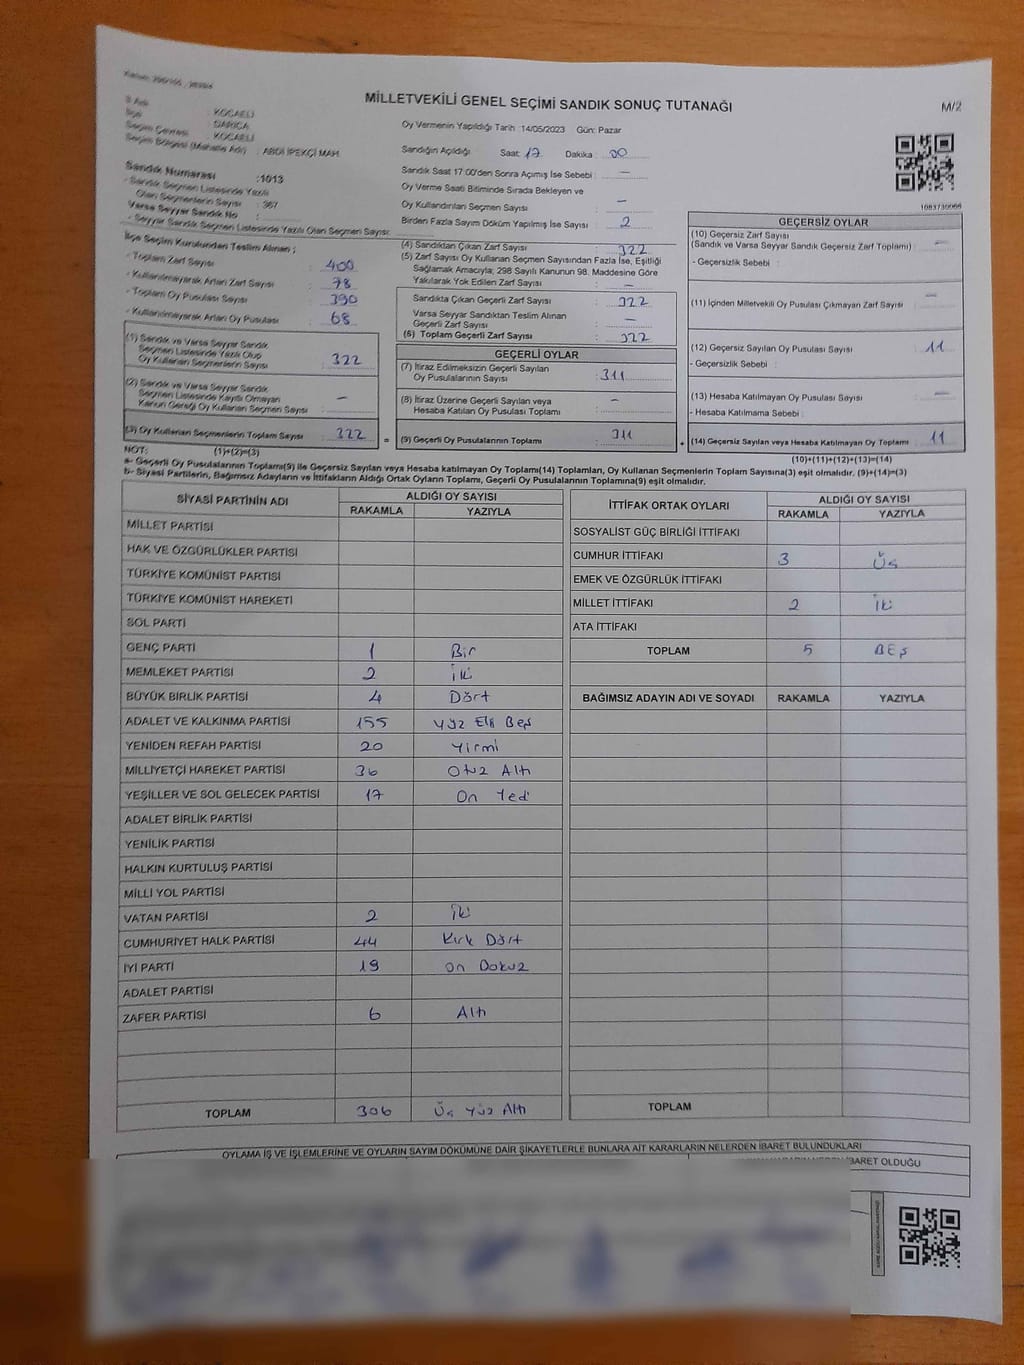 MİLLETVEKİLİ GENEL SEÇİMİ SANDIK SONUÇ TUTANAĞI
M/2
İl Adı : KOCAELİ
İlçe : DARICA
Seçim Çevresi : KOCAELİ
Seçim Bölgesi (Mahalle Adı) : ABDİ İPEKÇİ MAH.
Sandık Numarası :1013
- Sandık Seçmen Listesinde Yazılı
Olan Seçmenlerin Sayısı : 367
Varsa Seyyar Sandık No :
- Seyyar Sandık Seçmen Listesinde Yazılı Olan Seçmen Sayısı:
İlçe Seçim Kurulundan Teslim Alınan ;
- Toplam Zarf Sayısı : 400
- Kullanılmayarak Artan Zarf Sayısı : 78
- Toplam Oy Pusulası Sayısı : 390
- Kullanılmayarak Artan Oy Pusulası : 68
(1) Sandık ve Varsa Seyyar Sandık
Seçmen Listesinde Yazılı Olup
Oy Kullanan Seçmenlerin Sayısı : 322
(2) Sandık ve Varsa Seyyar Sandık
Seçmen Listesinde Kayıtlı Olmayan
Kanun Gereği Oy Kullanan Seçmen Sayısı : -
(3) Oy Kullanan Seçmenlerin Toplam Sayısı : 322
(1)+(2)=(3)
Oy Vermenin Yapıldığı Tarih :14/05/2023 Gün: Pazar
Sandığın Açıldığı Saat: 17 Dakika : 00
Sandık Saat 17:00'den Sonra Açımış İse Sebebi : -
Oy Verme Saati Bitiminde Sırada Bekleyen ve
Oy Kullandırılan Seçmen Sayısı : -
Birden Fazla Sayım Döküm Yapılmış İse Sayısı : 2
(4) Sandıktan Çıkan Zarf Sayısı : 322
(5) Zarf Sayısı Oy Kullanan Seçmen Sayısından Fazla İse, Eşitliği
Sağlamak Amacıyla; 298 Sayılı Kanunun 98. Maddesine Göre
Yakılarak Yok Edilen Zarf Sayısı : -
Sandıkta Çıkan Geçerli Zarf Sayısı : 322
Varsa Seyyar Sandıktan Teslim Alınan
Geçerli Zarf Sayısı : -
(6) Toplam Geçerli Zarf Sayısı : 322
GEÇERLİ OYLAR
(7) İtiraz Edilmeksizin Geçerli Sayılan
Oy Pusulalarının Sayısı : 311
(8) İtiraz Üzerine Geçerli Sayılan veya
Hesaba Katılan Oy Pusulası Toplamı : -
= (9) Geçerli Oy Pusulalarının Toplamı : 311 +
1083730066
GEÇERSİZ OYLAR
(10) Geçersiz Zarf Sayısı
(Sandık ve Varsa Seyyar Sandık Geçersiz Zarf Toplamı) : -
- Geçersizlik Sebebi :
(11) İçinden Milletvekili Oy Pusulası Çıkmayan Zarf Sayısı : -
(12) Geçersiz Sayılan Oy Pusulası Sayısı : 11
- Geçersizlik Sebebi :
(13) Hesaba Katılmayan Oy Pusulası Sayısı : -
- Hesaba Katılmama Sebebi :
(14) Geçersiz Sayılan veya Hesaba Katılmayan Oy Toplamı : 11
(10)+(11)+(12)+(13)=(14)
NOT:
a- Geçerli Oy Pusulalarının Toplamı(9) ile Geçersiz Sayılan veya Hesaba katılmayan Oy Toplamı(14) Toplamları, Oy Kullanan Seçmenlerin Toplam Sayısına(3) eşit olmalıdır. (9)+(14)=(3)
b- Siyasi Partilerin, Bağımsız Adayların ve İttifakların Aldığı Ortak Oyların Toplamı, Geçerli Oy Pusulalarının Toplamına(9) eşit olmalıdır.
SİYASİ PARTİNİN ADI ALDIĞI OY SAYISI
RAKAMLA YAZIYLA
MİLLET PARTİSİ
HAK VE ÖZGÜRLÜKLER PARTİSİ
TÜRKİYE KOMÜNİST PARTİSİ
TÜRKİYE KOMÜNİST HAREKETİ
SOL PARTİ
GENÇ PARTİ 1 Bir
MEMLEKET PARTİSİ 2 İki
BÜYÜK BİRLİK PARTİSİ 4 Dört
ADALET VE KALKINMA PARTİSİ 155 yüz Elli Beş
YENİDEN REFAH PARTİSİ 20 Yirmi
MİLLİYETÇİ HAREKET PARTİSİ 36 Otuz Altı
YEŞİLLER VE SOL GELECEK PARTİSİ 17 On Yedi
ADALET BİRLİK PARTİSİ
YENİLİK PARTİSİ
HALKIN KURTULUŞ PARTİSİ
MİLLİ YOL PARTİSİ
VATAN PARTİSİ 2 İki
CUMHURİYET HALK PARTİSİ 44 Kırk Dört
İYİ PARTİ 19 On Dokuz
ADALET PARTİSİ
ZAFER PARTİSİ 6 Altı
TOPLAM 306 Üç Yüz Altı
İTTİFAK ORTAK OYLARI ALDIĞI OY SAYISI
RAKAMLA YAZIYLA
SOSYALİST GÜÇ BİRLİĞİ İTTİFAKI
CUMHUR İTTİFAKI 3 Üç
EMEK VE ÖZGÜRLÜK İTTİFAKI
MİLLET İTTİFAKI 2 İki
ATA İTTİFAKI
TOPLAM 5 BEŞ
BAĞIMSIZ ADAYIN ADI VE SOYADI RAKAMLA YAZIYLA
TOPLAM
OYLAMA İŞ VE İŞLEMLERİNE VE OYLARIN SAYIM DÖKÜMÜNE DAİR ŞİKAYETLERLE BUNLARA AİT KARARLARIN NELERDEN İBARET BULUNDUKLARI
İBARET OLDUĞU